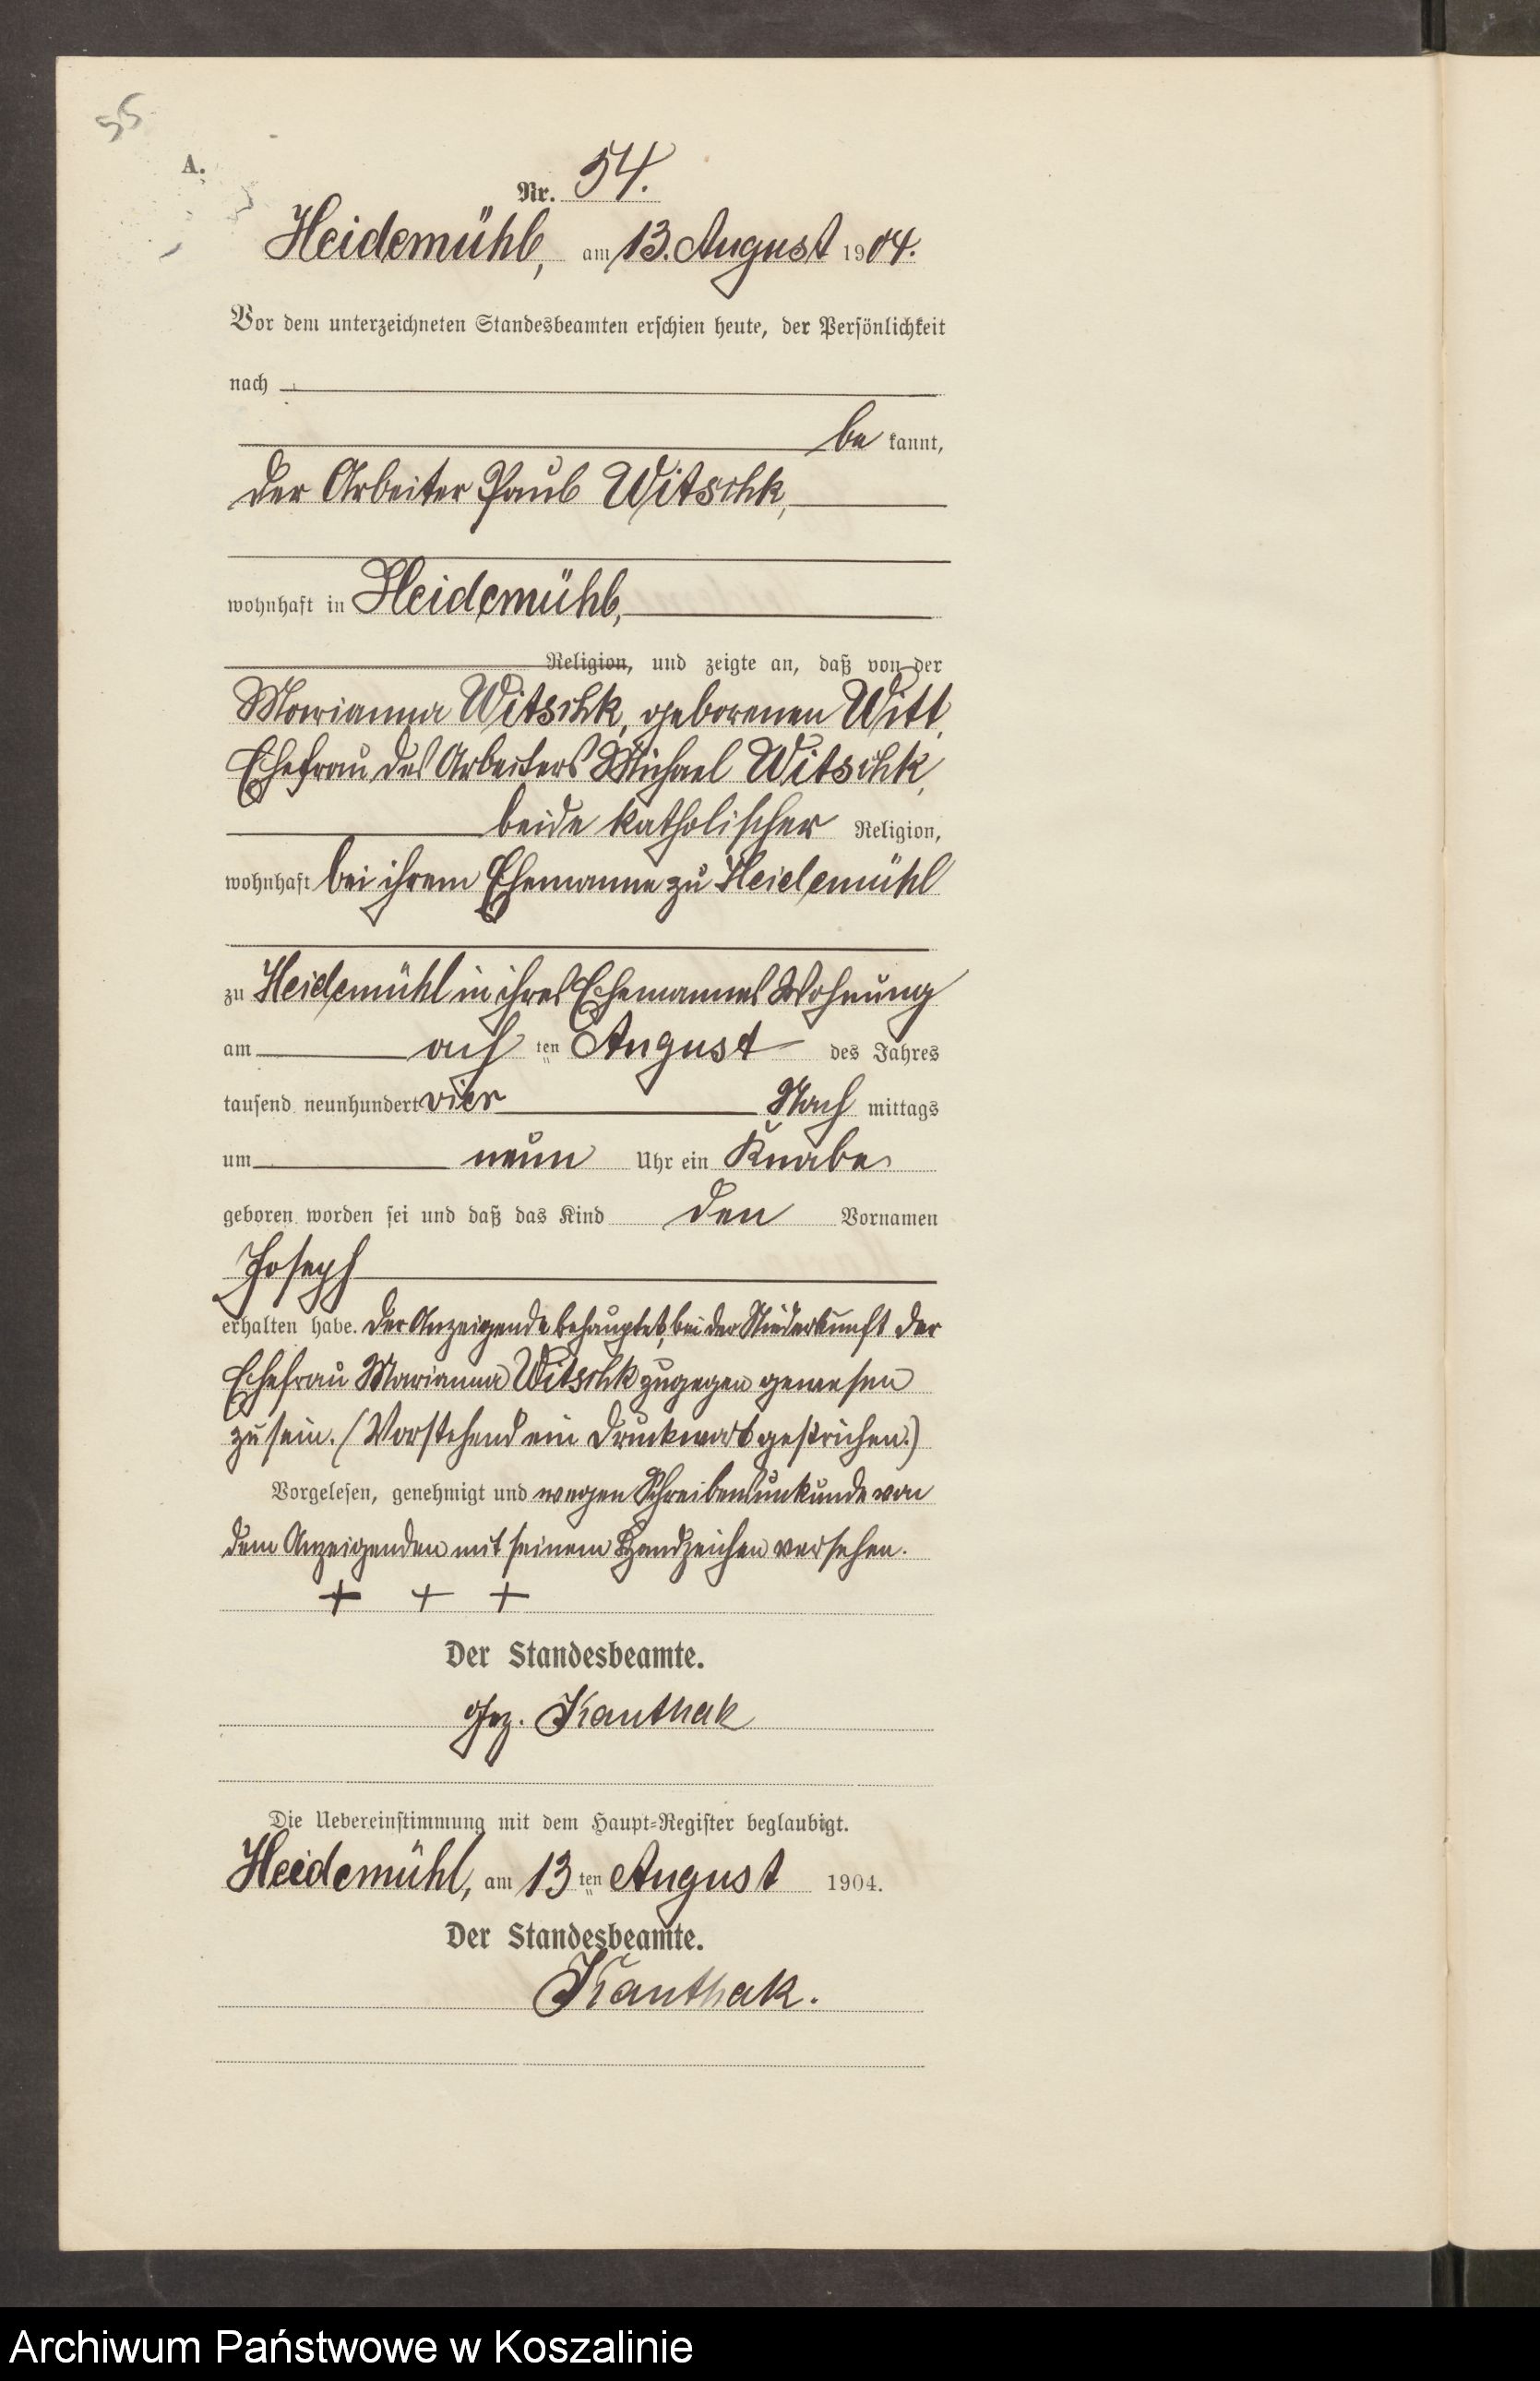 55
A.
Nr. 54.
Heidemühl, am 13. August 1904.
Vor dem unterzeichneten Standesbeamten erschien heute, der Persönlichkeit
nach
be kannt,
der Arbeiter Paul Witschk,
wohnhaft in Heidemühl,
Religion, und zeigte an, daß von der
Marianna Witschk, geborenen Witt,
Ehefrau des Arbeiters Michael Witschk,
beide katholischer Religion,
wohnhaft bei ihrem Ehemanne zu Heidemühl
zu Heidemühl in ihres Ehemannes Wohnung
am ach ten August des Jahres
tausend neunhundert vier Nach mittags
um neun Uhr ein Knabe
geboren worden sei und daß das Kind den Vornamen
Joseph
erhalten habe. Der Anzeigende behauptet, bei der Niederkunft der
Ehefrau Marianna Witschk zugegen gewesen
zu sein. (Vorstehend ein Druckwort gestrichen.)
Vorgelesen, genehmigt und wegen Schreibensunkunde von
dem Anzeigenden mit seinem Handzeichen versehen.
+ + +
Der Standesbeamte.
gez. Kanthak
Die Uebereinstimmung mit dem Haupt-Register beglaubigt.
Heidemühl, am 13 ten August 1904.
Der Standesbeamte.
Kanthak.
Archiwum Państwowe w Koszalinie